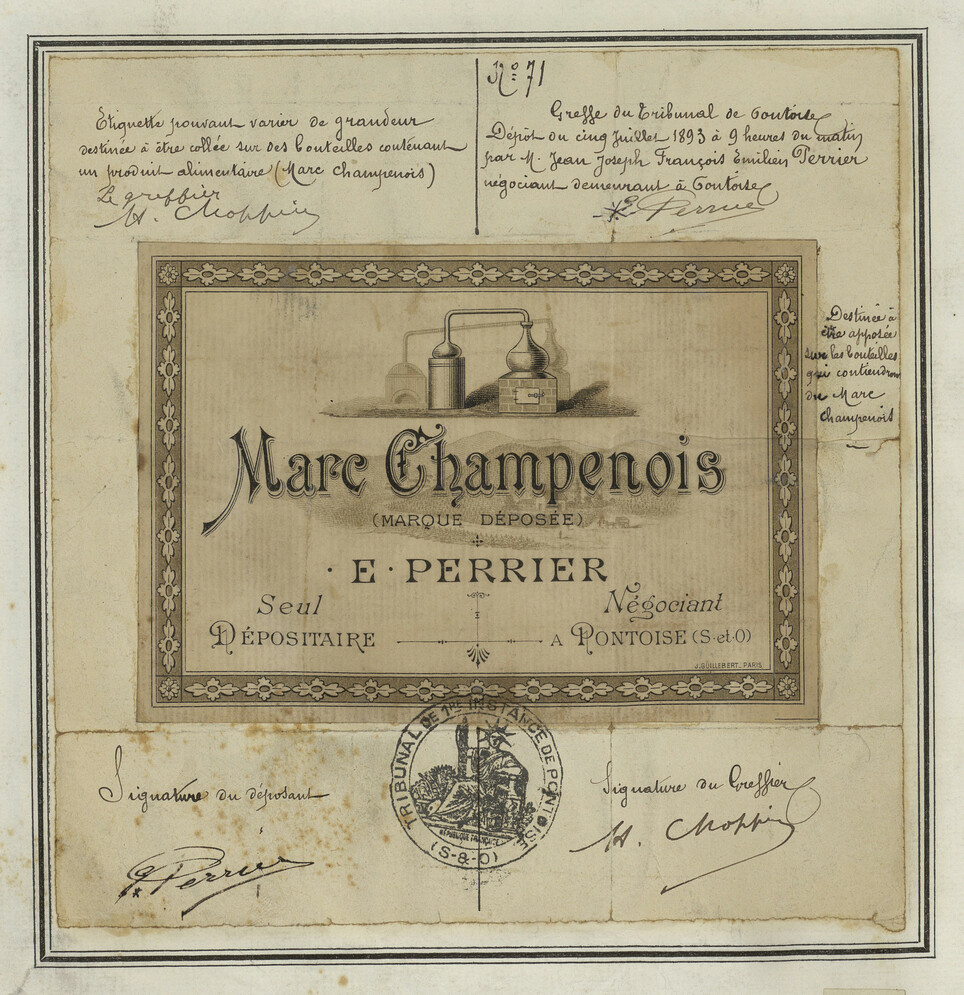 Etiquette pouvant varier de grandeur
destinée à être collée sur des bouteilles contenant
un produit alimentaire (Marc Champenois)
Le greffier
H. Choppin
N° 71
Greffe du Tribunal de Pontoise
Dépôt du cinq Juillet 1893 à 9 heures du matin
par M. Jean Joseph François Emilien Perrier
négociant demeurant à Pontoise
E. Perrier
Destinée à
être apposée
sur les bouteilles
qui contiendront
du Marc
Champenois
Marc Champenois
(MARQUE DÉPOSÉE)
· E · PERRIER
Seul
DÉPOSITAIRE
Négociant
A PONTOISE (S-et-O)
J. GUILLEBERT. PARIS
TRIBUNAL DE 1RE INSTANCE DE PONTOISE
RÉPUBLIQUE FRANÇAISE
(S-&-O)
Signature du déposant
E. Perrier
Signature du Greffier
H. Choppin